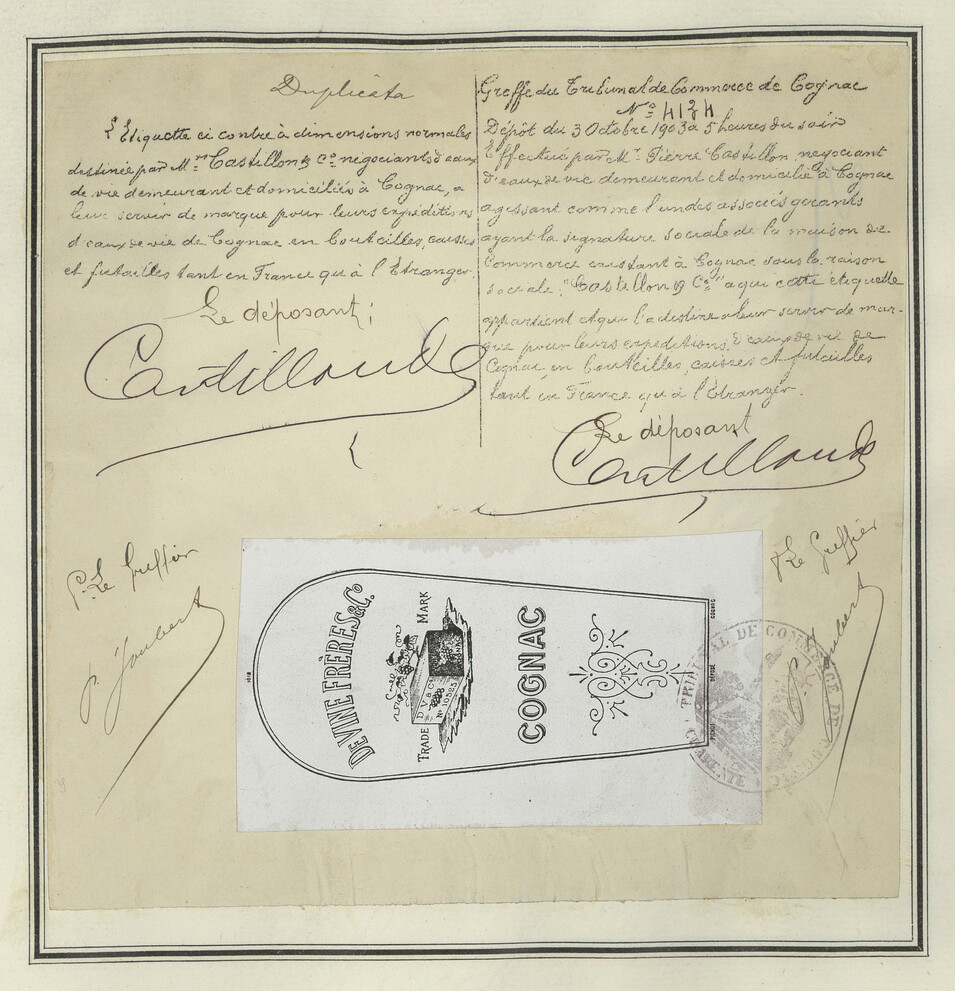 Duplicata
L'Etiquette ci contre à dimensions normales
destinée par Mrs Castillon & Co négociants d'eaux
de vie demeurant et domiciliés à Cognac, a
leur servir de marque pour leurs expéditions
d'eaux de vie de Cognac en bouteilles, caisses
et futailles tant en France qu'à l'Etranger.
Le déposant;
Castillon & Co
Greffe du Tribunal de Commerce de Cognac
No 4134
Dépôt du 3 Octobre 1903 à 5 heures du soir
Effectué par Mr Pierre Castillon négociant
d'eaux de vie demeurant et domicilié à Cognac
agissant comme l'un des associés gérants
ayant la signature sociale de la maison de
Commerce existant à Cognac sous la raison
sociale: "Castillon & Co" a qui cette étiquette
appartient et qui l'a destine a leur servir de mar-
que pour leurs expéditions d'eaux de vie de
Cognac en bouteilles, caisses et futailles
tant en France qu'à l'Etranger.
Le déposant
Castillon & Co
Pr Le Greffier
P. Joubert
Le Greffier
P. Joubert
DEVINE FRÈRES & Co.
TRADE MARK
D.V. & Co
No 10525
COGNAC
TRIBUNAL DE COMMERCE DE COGNAC
CHARENTE